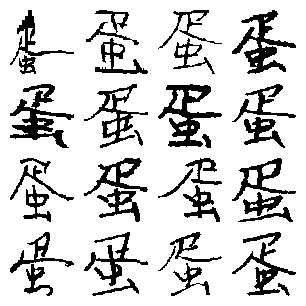 蛋蛋蛋蛋
蛋蛋蛋蛋
蛋蛋蛋蛋
蛋蛋蛋蛋